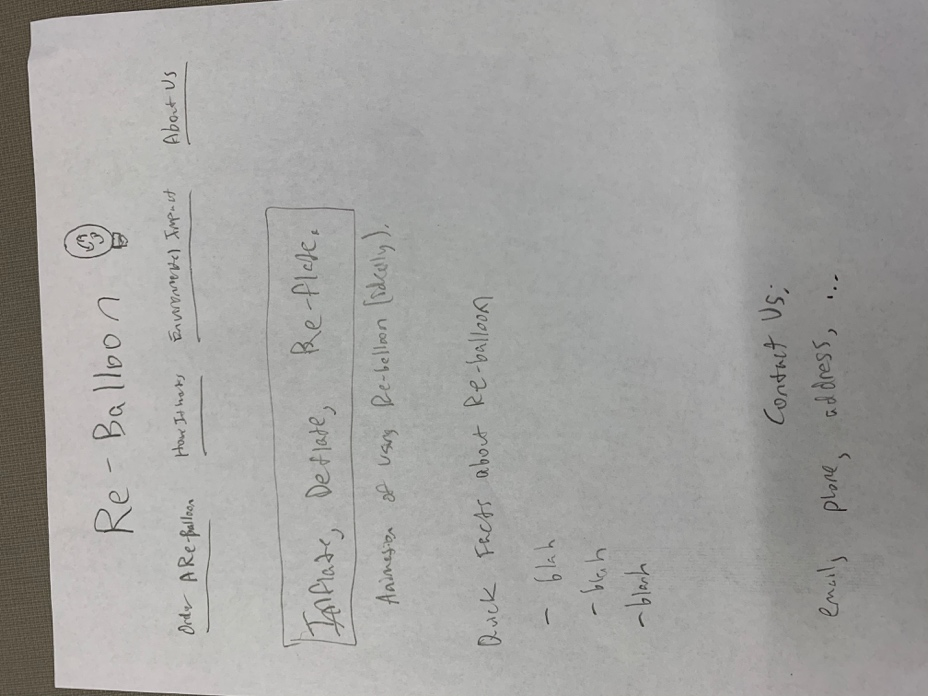 Re-Balloon
Order A Re-Balloon How It works Environmental Impact About Us
Inflate, Deflate, Re-flate.
Animation of using Re-balloon (ideally).
Quick Facts about Re-balloon
- blah
- blah
- blah
Contact Us:
email, phone, address, ...